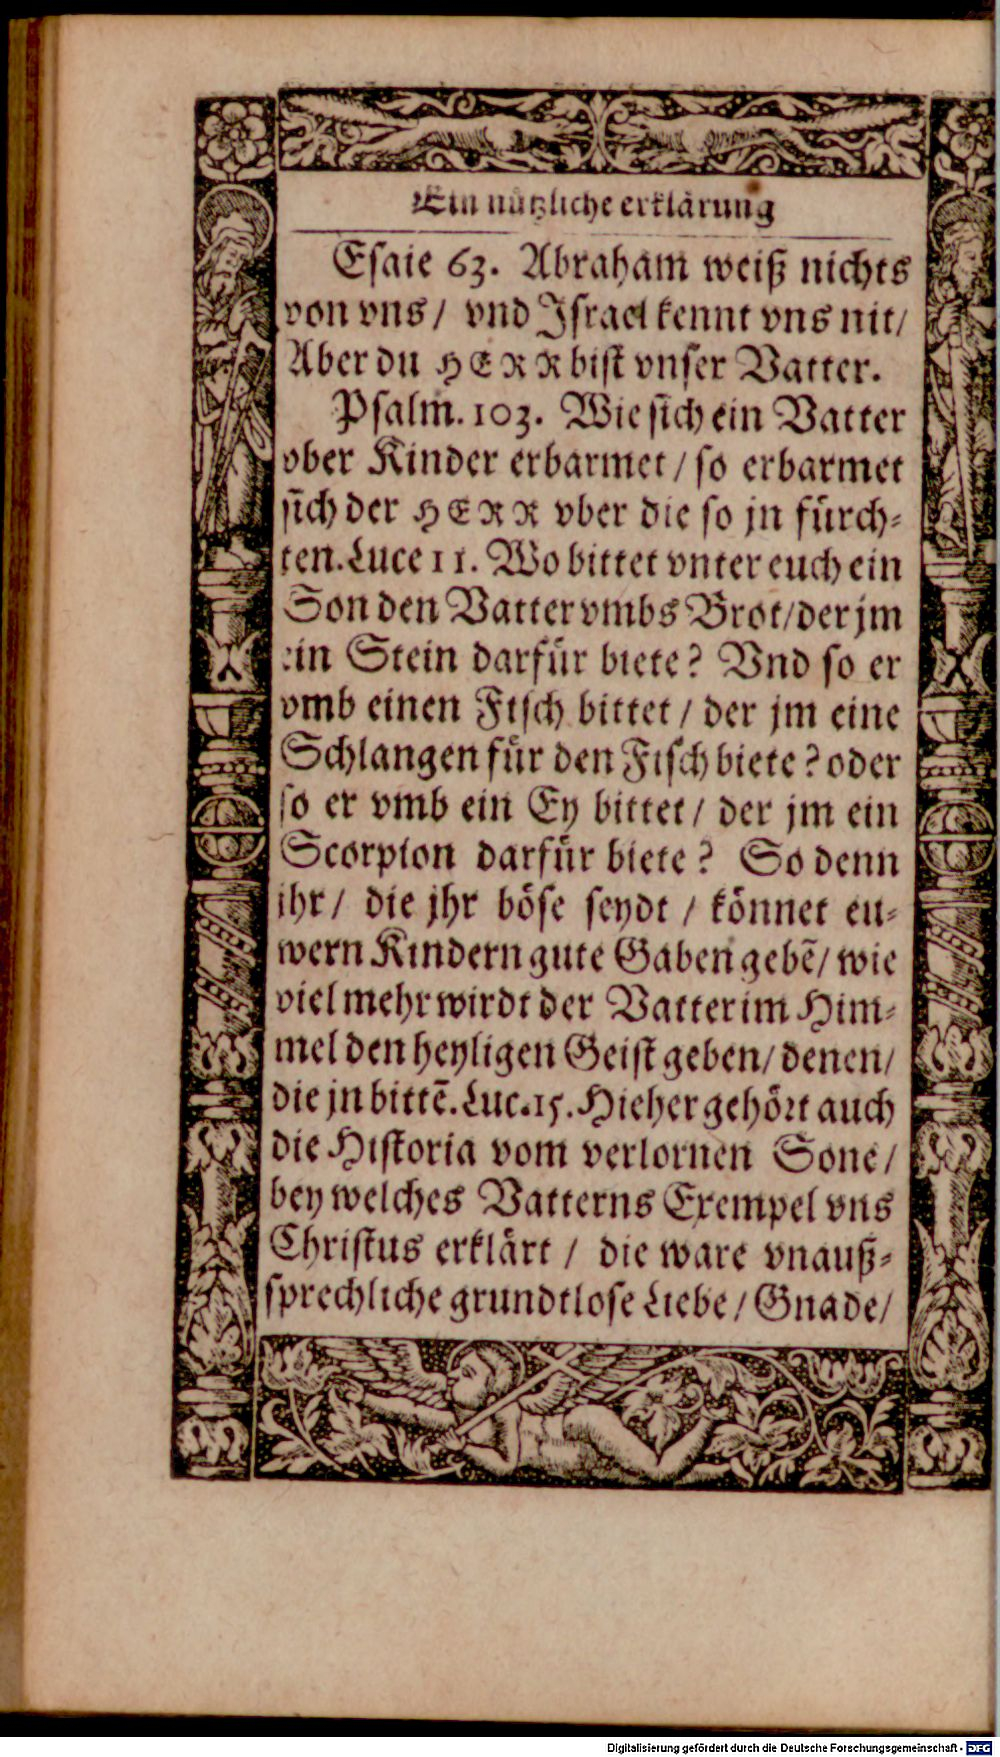 Ein nützliche erklärung
Esaie 63. Abraham weiß nichts
von vns/ vnd Israel kennt vns nit/
Aber du HERR bist vnser Vatter.
Psalm. 103. Wie sich ein Vatter
vber Kinder erbarmet/ so erbarmet
sich der HERR vber die so jn fürch-
ten. Luce 11. Wo bittet vnter euch ein
Son den Vatter vmbs Brot/ der jm
ein Stein darfür biete? Vnd so er
vmb einen Fisch bittet/ der jm eine
Schlangen für den Fisch biete? oder
so er vmb ein Ey bittet/ der jm ein
Scorpion darfür biete? So denn
ihr/ die jhr böse seydt/ könnet eu-
wern Kindern gute Gaben gebẽ/ wie
viel mehr wirdt der Vatter im Him-
mel den heyligen Geist geben/ denen/
die jn bittẽ. Luc. 15. Hieher gehört auch
die Historia vom verlornen Sone/
bey welches Vatterns Exempel vns
Christus erklärt/ die ware vnauß-
sprechliche grundtlose Liebe/ Gnade/
Digitalisierung gefördert durch die Deutsche Forschungsgemeinschaft - DFG